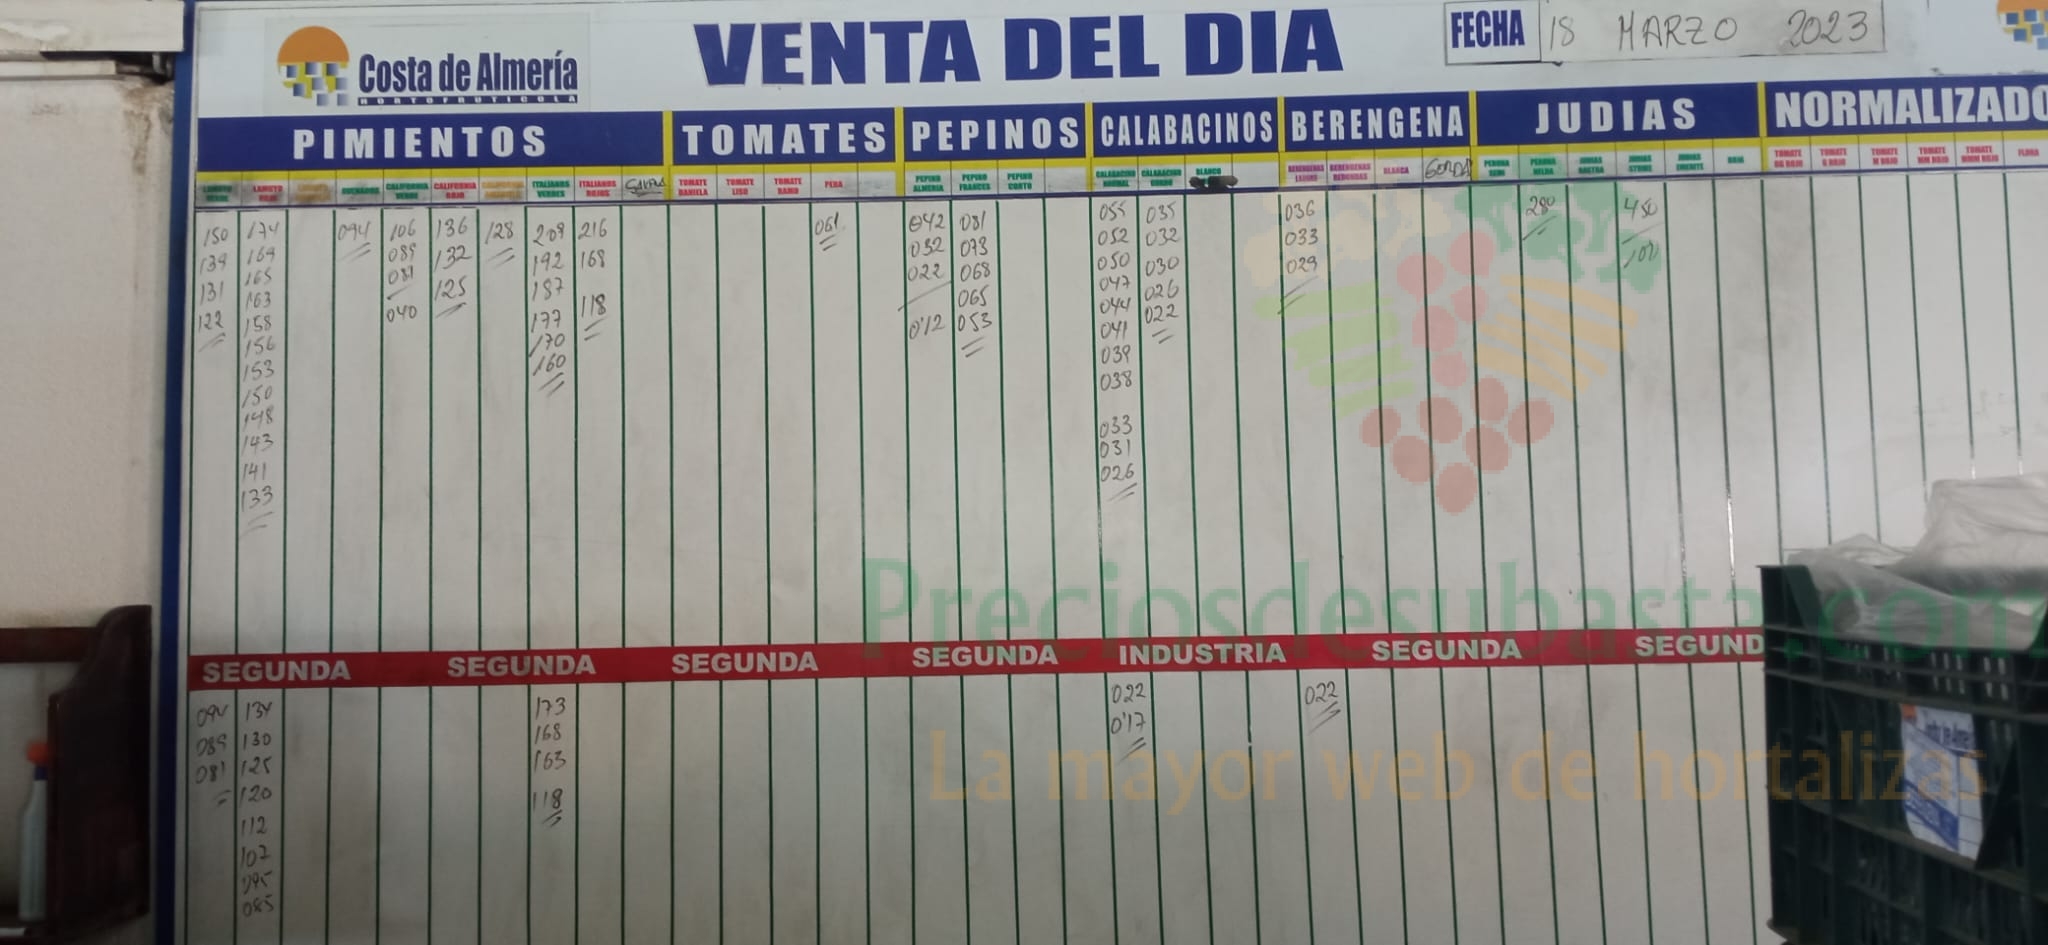 Costa de Almería
HORTOFRUTICOLA
VENTA DEL DIA
FECHA 18 MARZO 2023
PIMIENTOS TOMATES PEPINOS CALABACINOS BERENGENA JUDIAS NORMALIZADO
LAMUYO VERDE
LAMUYO ROJO
CALIFORNIA VERDE
CALIFORNIA ROJO
ITALIANOS VERDES
ITALIANOS ROJOS
TOMATE DANIELA
TOMATE LISO
TOMATE RAMO
PERA
PEPINO ALMERIA
PEPINO FRANCES
PEPINO CORTO
CALABACINO NORMAL
CALABACINO GORDO
BLANCO
BERENGENAS LARGAS
BERENGENAS REDONDAS
BLANCA
GORDA
PERONA SEMI
PERONA HELDA
JUDIAS RASTRA
JUDIAS STRIKE
ROJA
TOMATE GG ROJO
TOMATE G ROJO
TOMATE M ROJO
TOMATE MM ROJO
TOMATE MMM ROJO
FLORA
150 174 094 106 136 128 209 216 061 042 081 055 035 036 280 450
139 169 089 132 192 168 032 073 052 032 033 100
131 165 081 125 187 118 022 068 050 030 029
122 163 040 177 0'12 065 047 026
158 170 053 044 022
156 160 041
153 039
150 038
148 033
143 031
141 026
133
SEGUNDA SEGUNDA SEGUNDA SEGUNDA INDUSTRIA SEGUNDA SEGUND
094 134 173 022 022
089 130 168 0'17
081 125 163
120 118
112
107
095
085
Preciosdesubasta.com
La mayor web de hortalizas